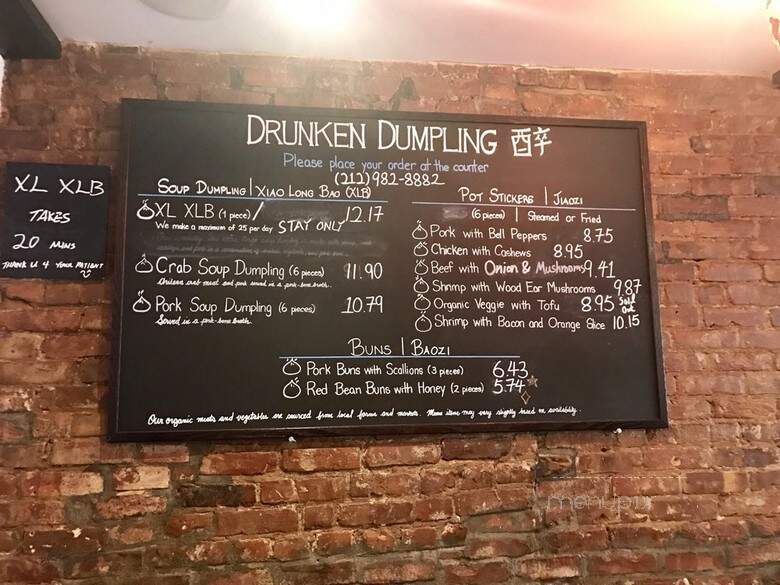 DRUNKEN DUMPLING 酉卒
Please place your order at the counter
(212)982-8882
XL XLB
TAKES
20 MINS
THANK U 4 YOUR PATIENT
SOUP DUMPLING | XIAO LONG BAO (XLB)
XL XLB (1 piece) / 12.17
We make a maximum of 25 per day STAY ONLY
Crab Soup Dumpling (6 pieces) 11.90
Chicken crab meat and pork served in a pork-bone broth.
Pork Soup Dumpling (6 pieces) 10.79
Served in a pork-bone broth.
POT STICKERS | JIAOZI
(6 pieces) | Steamed or Fried
Pork with Bell Peppers 8.75
Chicken with Cashews 8.95
Beef with Onion & Mushrooms 9.41
Shrimp with Wood Ear Mushrooms 9.87
Organic Veggie with Tofu 8.95 Sold Out
Shrimp with Bacon and Orange Slice 10.15
BUNS | BAOZI
Pork Buns with Scallions (3 pieces) 6.43
Red Bean Buns with Honey (2 pieces) 5.74
Our organic meats and vegetables are sourced from local farms and markets. Menu items may vary slightly based on availability.